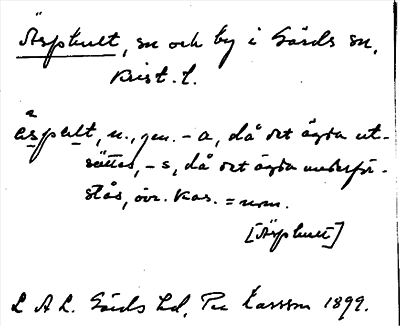 Äsphult, sn och by i Gärds sn,
Krist. l.
äspält, n., gen. -a, då det ägda ut-
sättes, -s, då det ägda underför-
stås, övr. kas. = nom.
[Äsphult]
L A L. Gärds hd, Per Larsson 1899.